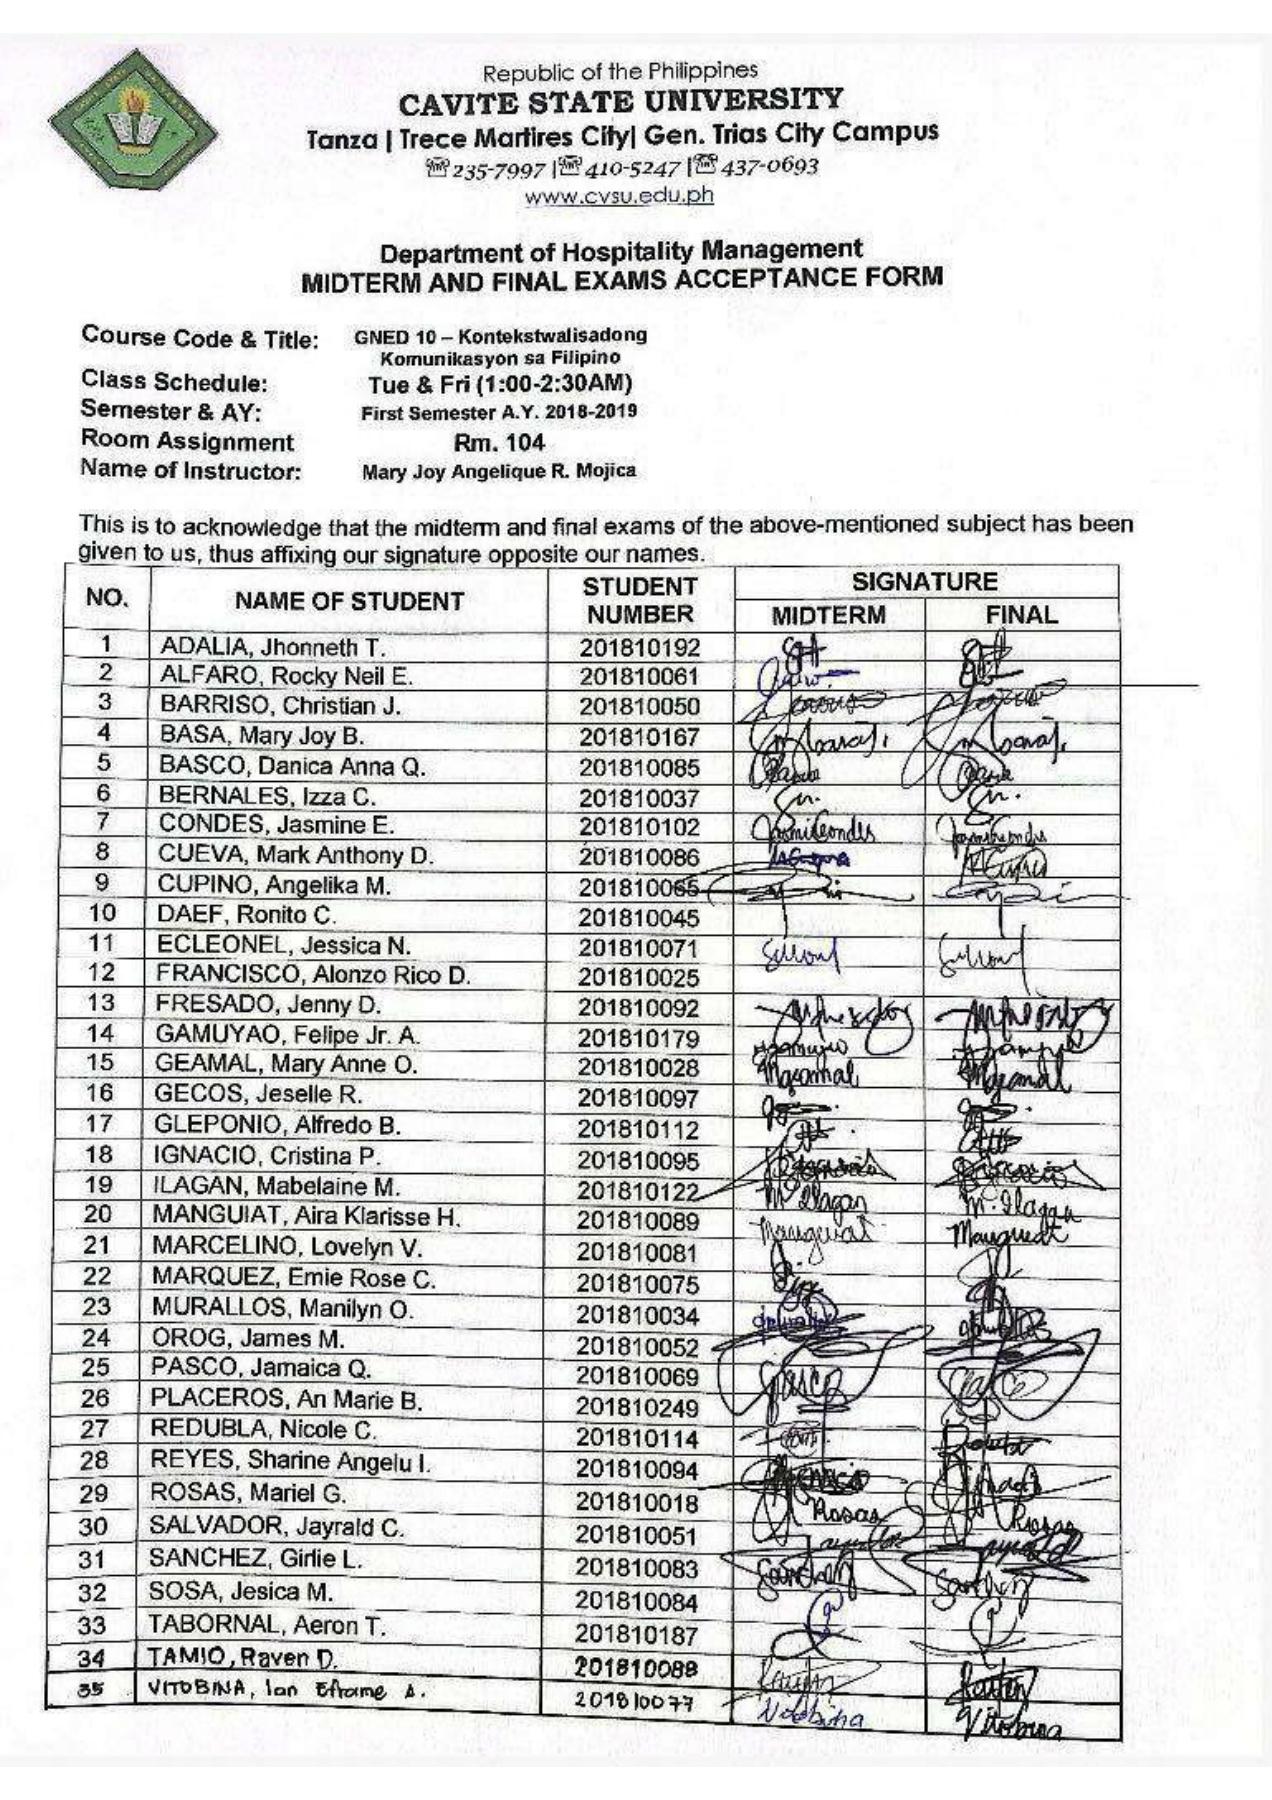 Republic of the Philippines
CAVITE STATE UNIVERSITY
Tanza | Trece Martires City| Gen. Trias City Campus
☏ 235-7997 |☏ 410-5247 |☏ 437-0693
www.cvsu.edu.ph
Department of Hospitality Management
MIDTERM AND FINAL EXAMS ACCEPTANCE FORM
Course Code & Title: GNED 10 – Kontekstwalisadong
Komunikasyon sa Filipino
Class Schedule: Tue & Fri (1:00-2:30AM)
Semester & AY: First Semester A.Y. 2018-2019
Room Assignment Rm. 104
Name of Instructor: Mary Joy Angelique R. Mojica
This is to acknowledge that the midterm and final exams of the above-mentioned subject has been
given to us, thus affixing our signature opposite our names.
NO. NAME OF STUDENT STUDENT NUMBER SIGNATURE
MIDTERM FINAL
1 ADALIA, Jhonneth T. 201810192
2 ALFARO, Rocky Neil E. 201810061
3 BARRISO, Christian J. 201810050
4 BASA, Mary Joy B. 201810167
5 BASCO, Danica Anna Q. 201810085
6 BERNALES, Izza C. 201810037
7 CONDES, Jasmine E. 201810102
8 CUEVA, Mark Anthony D. 201810086
9 CUPINO, Angelika M. 201810065
10 DAEF, Ronito C. 201810045
11 ECLEONEL, Jessica N. 201810071
12 FRANCISCO, Alonzo Rico D. 201810025
13 FRESADO, Jenny D. 201810092
14 GAMUYAO, Felipe Jr. A. 201810179
15 GEAMAL, Mary Anne O. 201810028
16 GECOS, Jeselle R. 201810097
17 GLEPONIO, Alfredo B. 201810112
18 IGNACIO, Cristina P. 201810095
19 ILAGAN, Mabelaine M. 201810122 M. Ilagan M. Ilagan
20 MANGUIAT, Aira Klarisse H. 201810089 Manguiat Manguiat
21 MARCELINO, Lovelyn V. 201810081
22 MARQUEZ, Emie Rose C. 201810075
23 MURALLOS, Manilyn O. 201810034
24 OROG, James M. 201810052
25 PASCO, Jamaica Q. 201810069
26 PLACEROS, An Marie B. 201810249
27 REDUBLA, Nicole C. 201810114
28 REYES, Sharine Angelu I. 201810094
29 ROSAS, Mariel G. 201810018 Rosas Rosas
30 SALVADOR, Jayrald C. 201810051
31 SANCHEZ, Girlie L. 201810083 Sanchez Sanchez
32 SOSA, Jesica M. 201810084
33 TABORNAL, Aeron T. 201810187
34 TAMIO, Raven D. 201810088
35 VITOBINA, Ian Eframe A. 201810077 Vitobina Vitobina